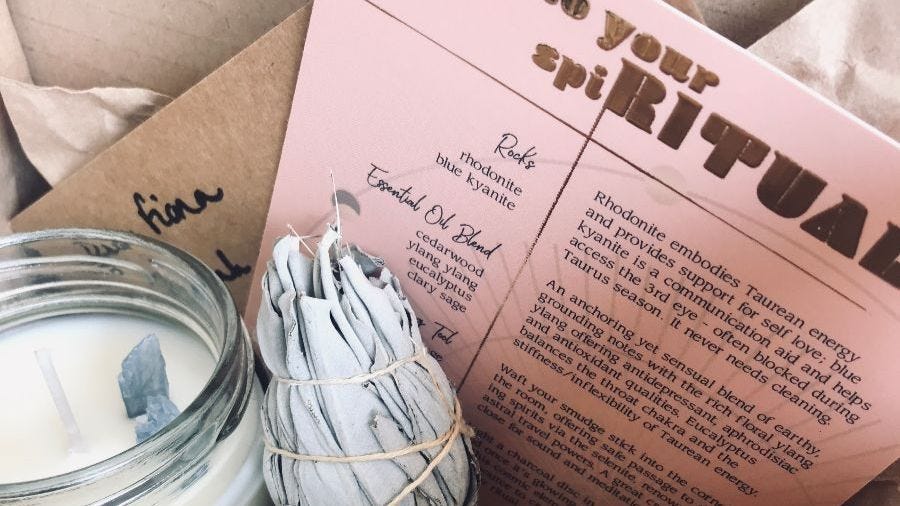 your
spiRITUAL
fiona
Rocks
rhodonite
blue kyanite
Essential Oils Blend
cedarwood
ylang ylang
eucalyptus
clary sage
Tool
Rhodonite embodies Taurean energy
and provides support for self love; blue
kyanite is a communication aid and helps
access the 3rd eye - often blocked during
Taurus season. It never needs cleaning.
An anchoring yet sensual blend of earthy,
grounding notes with the rich floral ylang
ylang offering antidepressant, aphrodisiac
and antioxidant qualities. Eucalyptus
balances the throat chakra and the
stiffness/inflexibility of Taurean energy.
Waft your smudge stick into the
the room, offering safe passage to
spirits via the selenite. A great
astral travel powers.
for soul and meditation
a charcoal disc in
once it's glowing